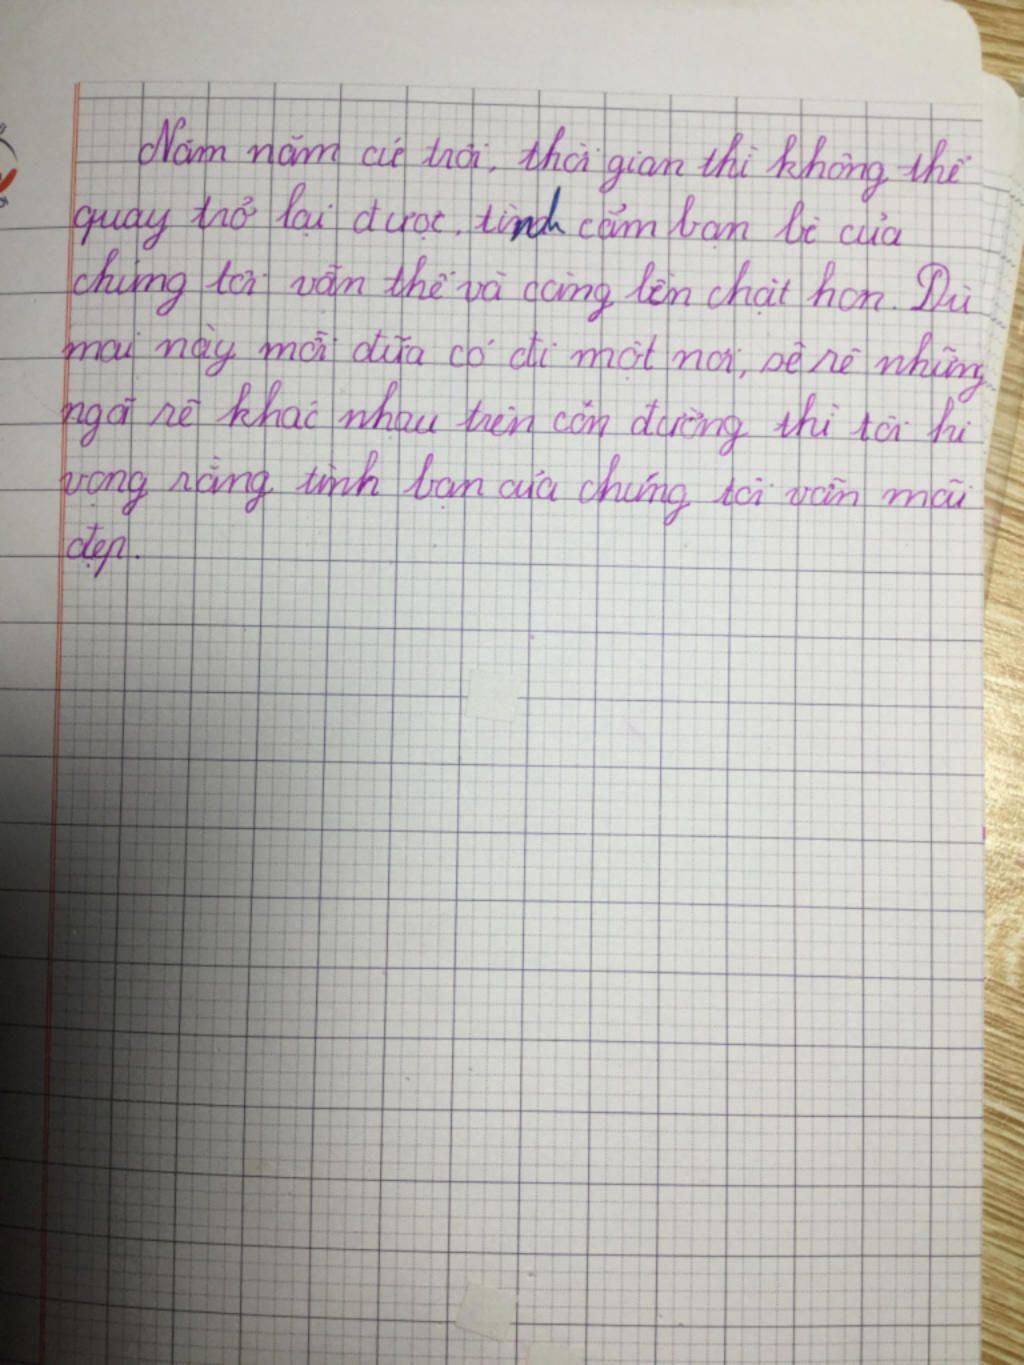 Năm năm cứ trôi, thời gian thì không thể
quay trở lại được. tình cảm bạn bè của
chúng tôi vẫn thế và càng lên chặt hơn. Dù
mai này mỗi đứa có đi một nơi, sẽ rẽ những
ngã rẽ khác nhau trên côn đường thì tôi hi
vọng rằng tình bạn của chúng tôi vẫn mãi
đẹp.